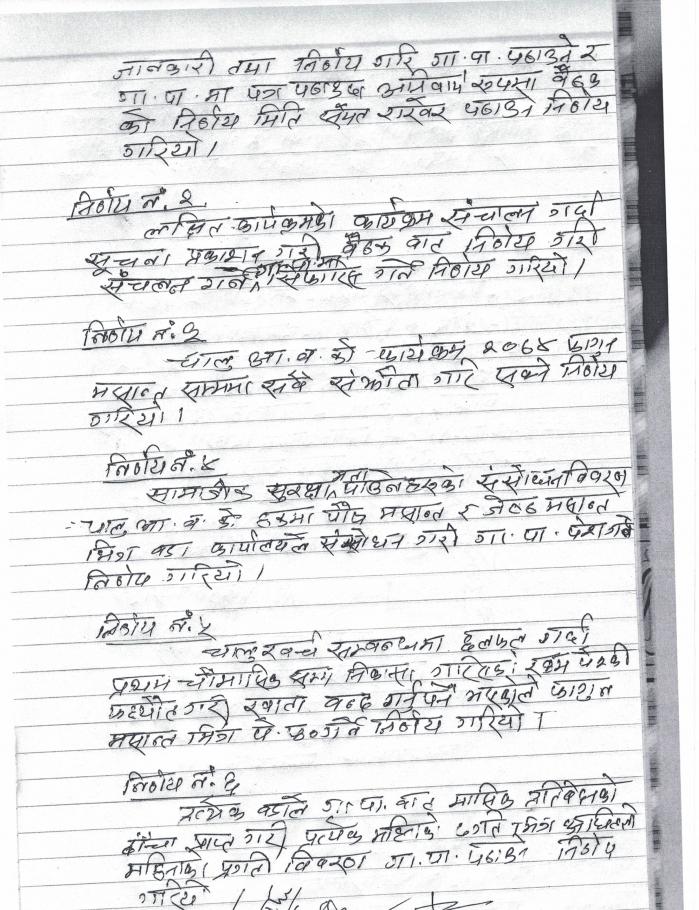 जानकारी तथा निर्णय गरि गा.पा. पठाउने र
गा.पा. मा पत्र पठाउदा अनिवार्य रुपमा बैठक
को निर्णय मिति समेत राखेर पठाउने निर्णय
गरियो ।
निर्णय नं. २
लक्षित कार्यक्रमको कार्यक्रम संचालन गर्दा
सूचना प्रकाशन गरी बैठक बाट निर्णय गरी
संचालन गर्न गा.पा. मा सिफारिस गर्ने निर्णय गरियो ।
निर्णय नं. ३
चालु आ.व. को कार्यक्रम २०७४ फागुन
मसान्त सम्ममा सबै संझौता गरि सक्ने निर्णय
गरियो ।
निर्णय नं. ४
सामाजीक सुरक्षा भत्ता पाउनेहरुको संसोधन विवरण
चालु आ.व. को हकमा पौष मसान्त र जेठ मसान्त
भित्र वडा कार्यालयले संसोधन गरी गा.पा. पेश गर्ने
निर्णय गरियो ।
निर्णय नं. ५
चालु खर्च सम्बन्धमा छलफल गर्दा
प्रथम चौमासिक सम्म निकासा गरिएको रकम पेश्की
फर्छ्यौट गरी खाता बन्द गर्नुपर्ने भएकोले फागुन
मसान्त भित्र पे.फ. गर्ने निर्णय गरियो ।
निर्णय नं. ६
प्रत्येक वडाले गा.पा. बाट मासिक प्रतिवेदनको
ढाँचा प्राप्त गरी प्रत्येक महिनाको गते भित्र
महिनाको प्रगती विवरण गा.पा. पठाउने निर्णय
गरियो